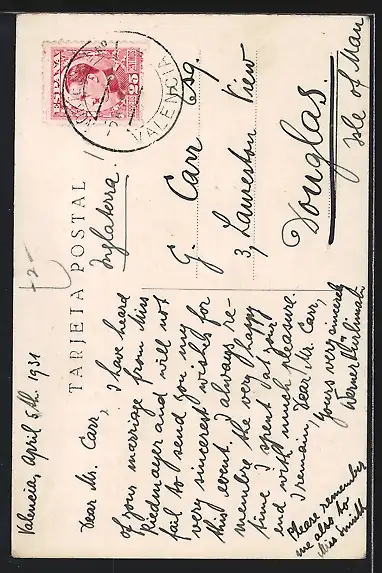 TARJETA POSTAL
ESPAÑA
25
VALENCIA
Valencia, April 5th. 1931
Dear Mr. Carr,
I have heard
of your marriage from Miss
Riedmayer and will not
fail to send you my
very sincerest wishes for
this event. I always re-
member the very happy
time I spent last your
end with much pleasure.
I remain, dear Mr. Carr,
yours very sincerely
Werner
Please remember
me also to
Miss Smith
Inglaterra!
G. Carr Esq.
3, Laureston View
Douglas.
Isle of Man